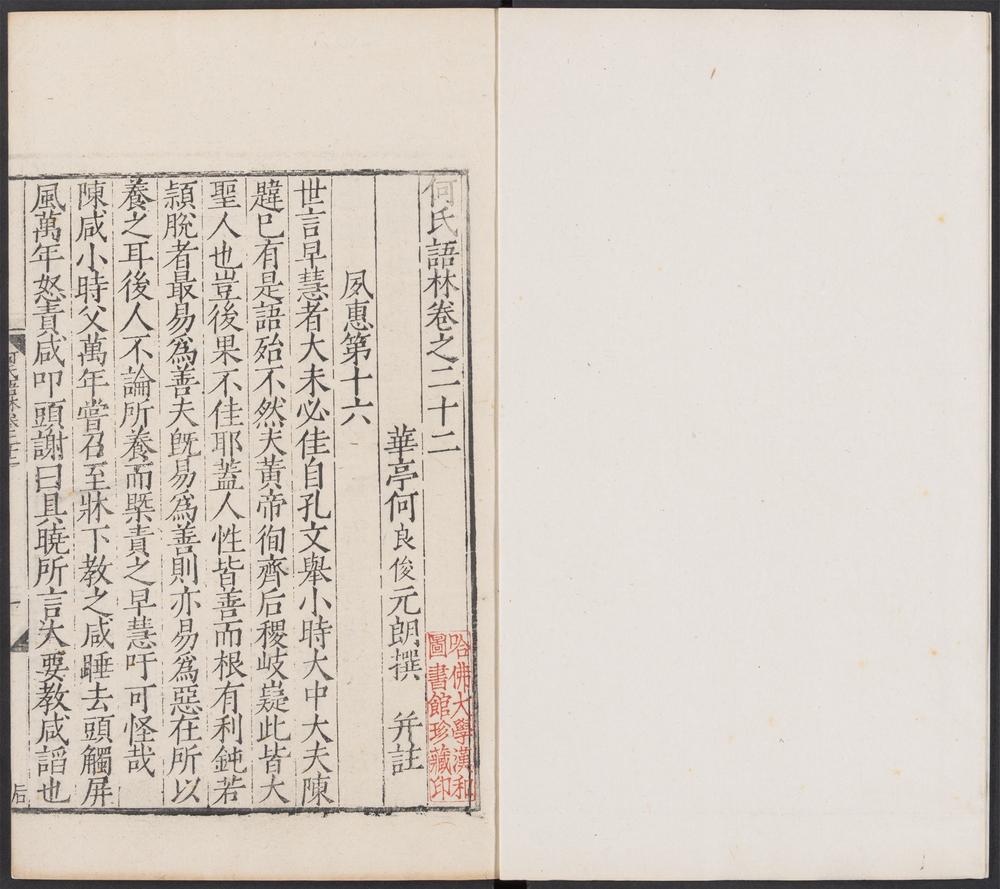 何氏語林卷之二十二
華亭何良俊元朗撰 并註
夙惠第十六
世言早慧者大未必佳自孔文舉小時大中大夫陳
韙已有是語殆不然夫黃帝徇齊后稷岐嶷此皆大
聖人也豈後果不佳耶蓋人性皆善而根有利鈍若
頴脫者最易為善夫旣易為善則亦易為惡在所以
養之耳後人不論所養而槩責之早慧吁可怪哉
陳咸小時父萬年嘗召至牀下教之咸睡去頭觸屏
風萬年怒責咸叩頭謝曰具曉所言大要教咸謟也
哈佛大學漢和
圖書館珍藏印